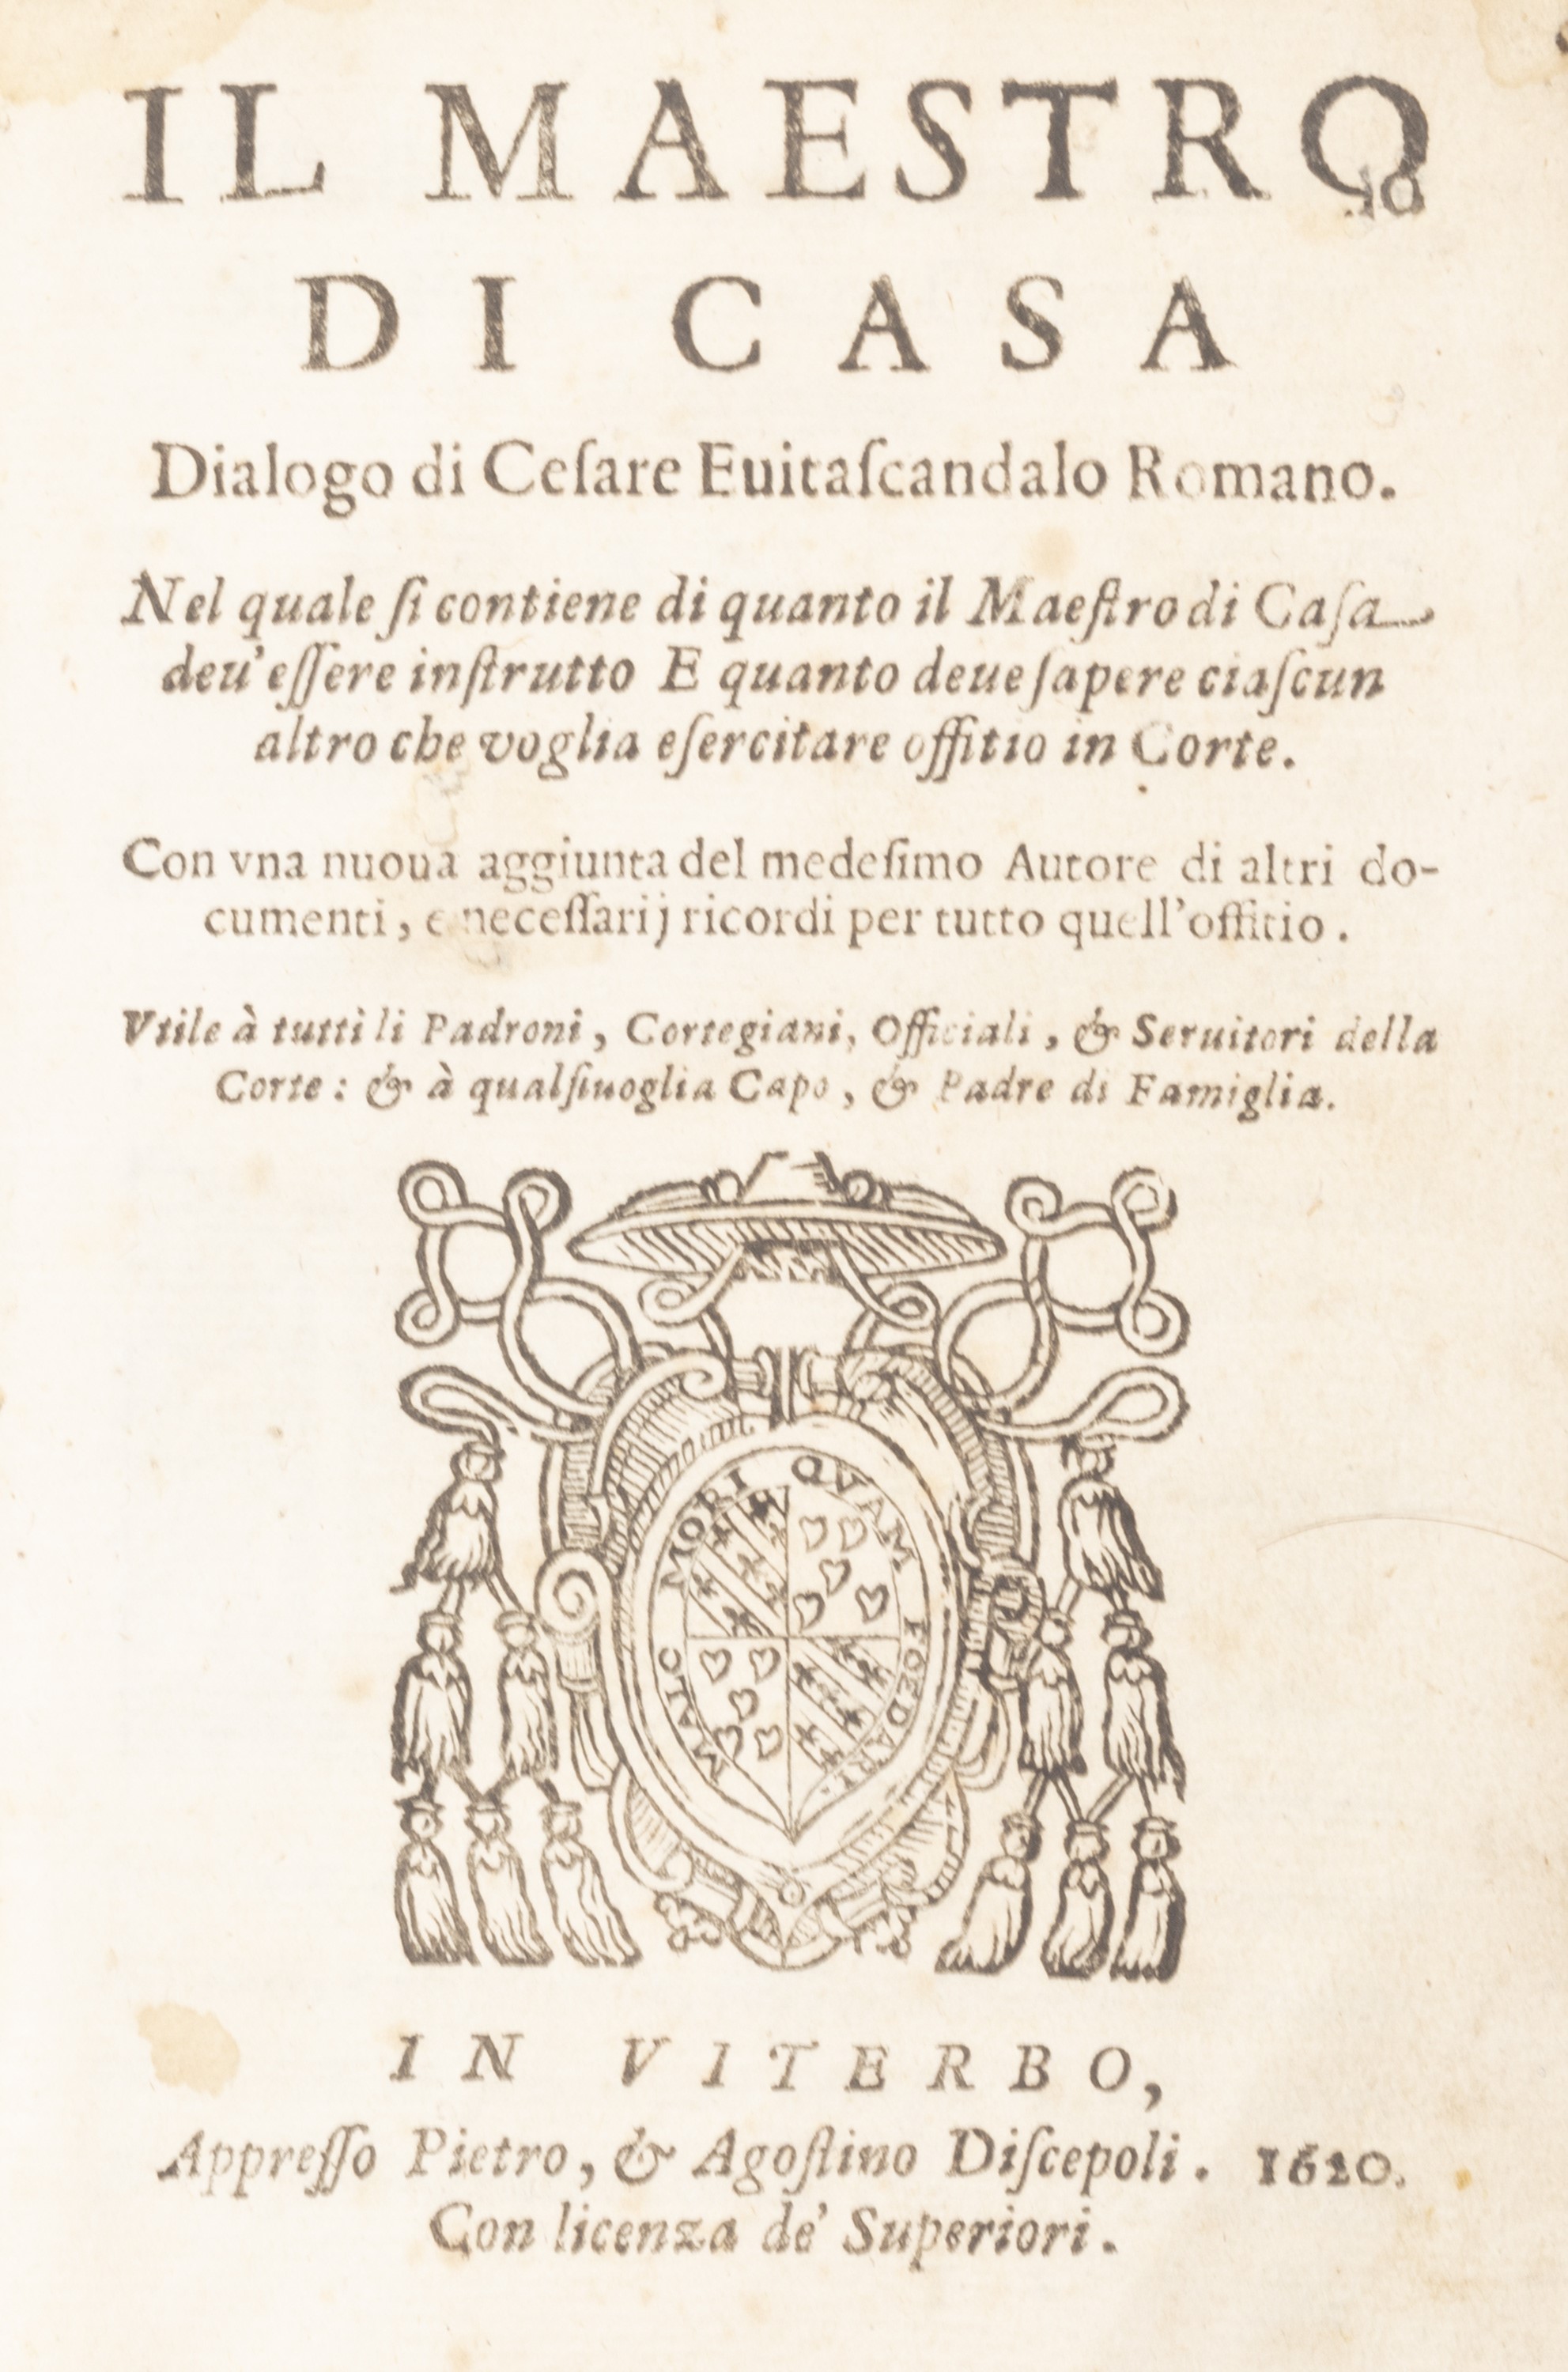 IL MAESTRO
DI CASA
Dialogo di Ceſare Euitaſcandalo Romano.
Nel quale ſi contiene di quanto il Maeſtro di Caſa
deu'eſſere inſtrutto E quanto deue ſapere ciaſcun
altro che voglia eſercitare offitio in Corte.
Con vna nuoua aggiunta del medeſimo Autore di altri do-
cumenti, e neceſſarij ricordi per tutto quell'offitio.
Vtile à tutti li Padroni, Cortegiani, Officiali, & Seruitori della
Corte: & à qualſiuoglia Capo, & Padre di Famiglia.
MALO MORI QVAM FOEDARI.
IN VITERBO,
Appreſſo Pietro, & Agoſtino Diſcepoli. 1620.
Con licenza de' Superiori.